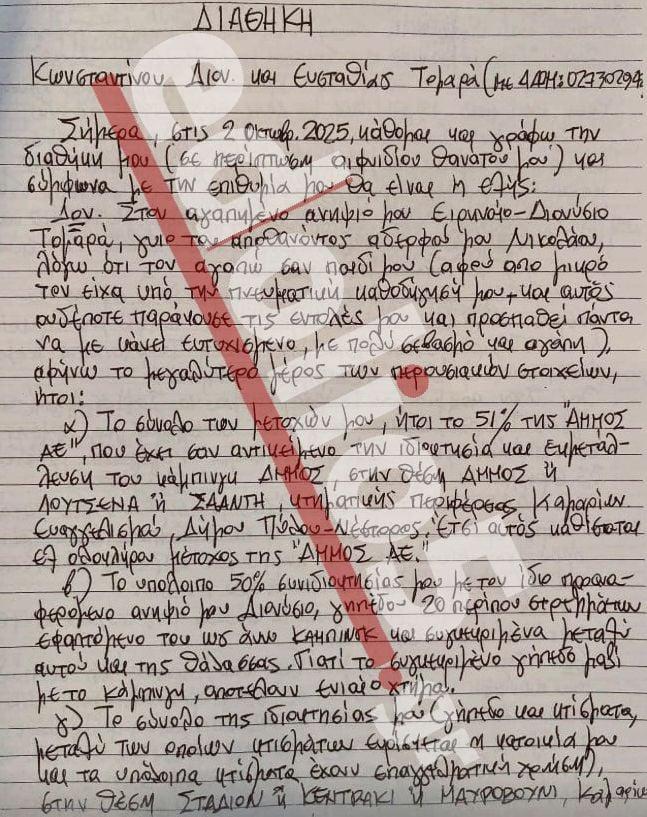 ΔΙΑΘΗΚΗ
Κωνσταντίνου Διον. και Ευσταθίας Τομαρά (με ΑΦΜ: 02730294
Σήμερα, στις 2 Οκτωβρ. 2025, κάθομαι και γράφω την
διαθήκη μου (σε περίπτωση αιφνιδίου θανάτου μου) και
σύμφωνα με την επιθυμία μου θα είναι η εξής:
1ον. Στον αγαπημένο ανηψιό μου Ειρηναίο-Διονύσιο
Τομαρά, γυιο του αποθανόντος αδερφού μου Νικολάου,
λόγω ότι τον αγαπώ σαν παιδί μου (αφού από μικρό
τον είχα υπό την πνευματική καθοδήγησή μου, και αυτός
ουδέποτε παράκουσε τις εντολές μου και προσπαθεί πάντα
να με κάνει ευτυχισμένο, με πολύ σεβασμό και αγάπη),
αφήνω το μεγαλύτερο μέρος των περουσιακών στοιχείων,
ήτοι:
α) Το σύνολο των μετοχών μου, ήτοι το 51% της "ΑΜΜΟΣ
ΑΕ", που έχει σαν αντικείμενο την ιδιοκτησία και εκμετάλ-
λευση του κάμπινγκ ΑΜΜΟΣ, στην θέση ΑΜΜΟΣ ή
ΛΟΥΤΣΕΝΑ ή ΣΑΑΝΤΗ, κτηματικής περιφέρειας Καμαρίων
Ευαγγελισμού, Δήμου Πύλου-Νέστορος. Έτσι αυτός καθίσταται
εξ ολοκλήρου μέτοχος της "ΑΜΜΟΣ ΑΕ."
β) Το υπόλοιπο 50% συνιδιοκτησίας μου με τον ίδιο προανα-
φερόμενο ανηψιό μου Διονύσιο, γηπέδου 20 περίπου στρεμμάτων
εφαπτόμενο του ως άνω ΚΑΜΠΙΝΓΚ και συγκεκριμένα μεταξύ
αυτού και της θάλασσας. Γιατί το συγκεκριμένο γήπεδο μαζί
με το κάμπινγκ, αποτελούν ενιαίο χτήμα.
γ) Το σύνολο της ιδιοκτησίας μου (γήπεδο και κτίσματα,
μεταξύ των οποίων κτισμάτων ευρίσκεται η κατοικία μου
και τα υπόλοιπα κτίσματα έχουν επαγγελματική χρήση),
στην θέση ΣΤΑΔΙΟΝ ή ΚΕΝΤΡΑΚΙ ή ΜΑΥΡΟΒΟΥΝΙ, Καμαρίων